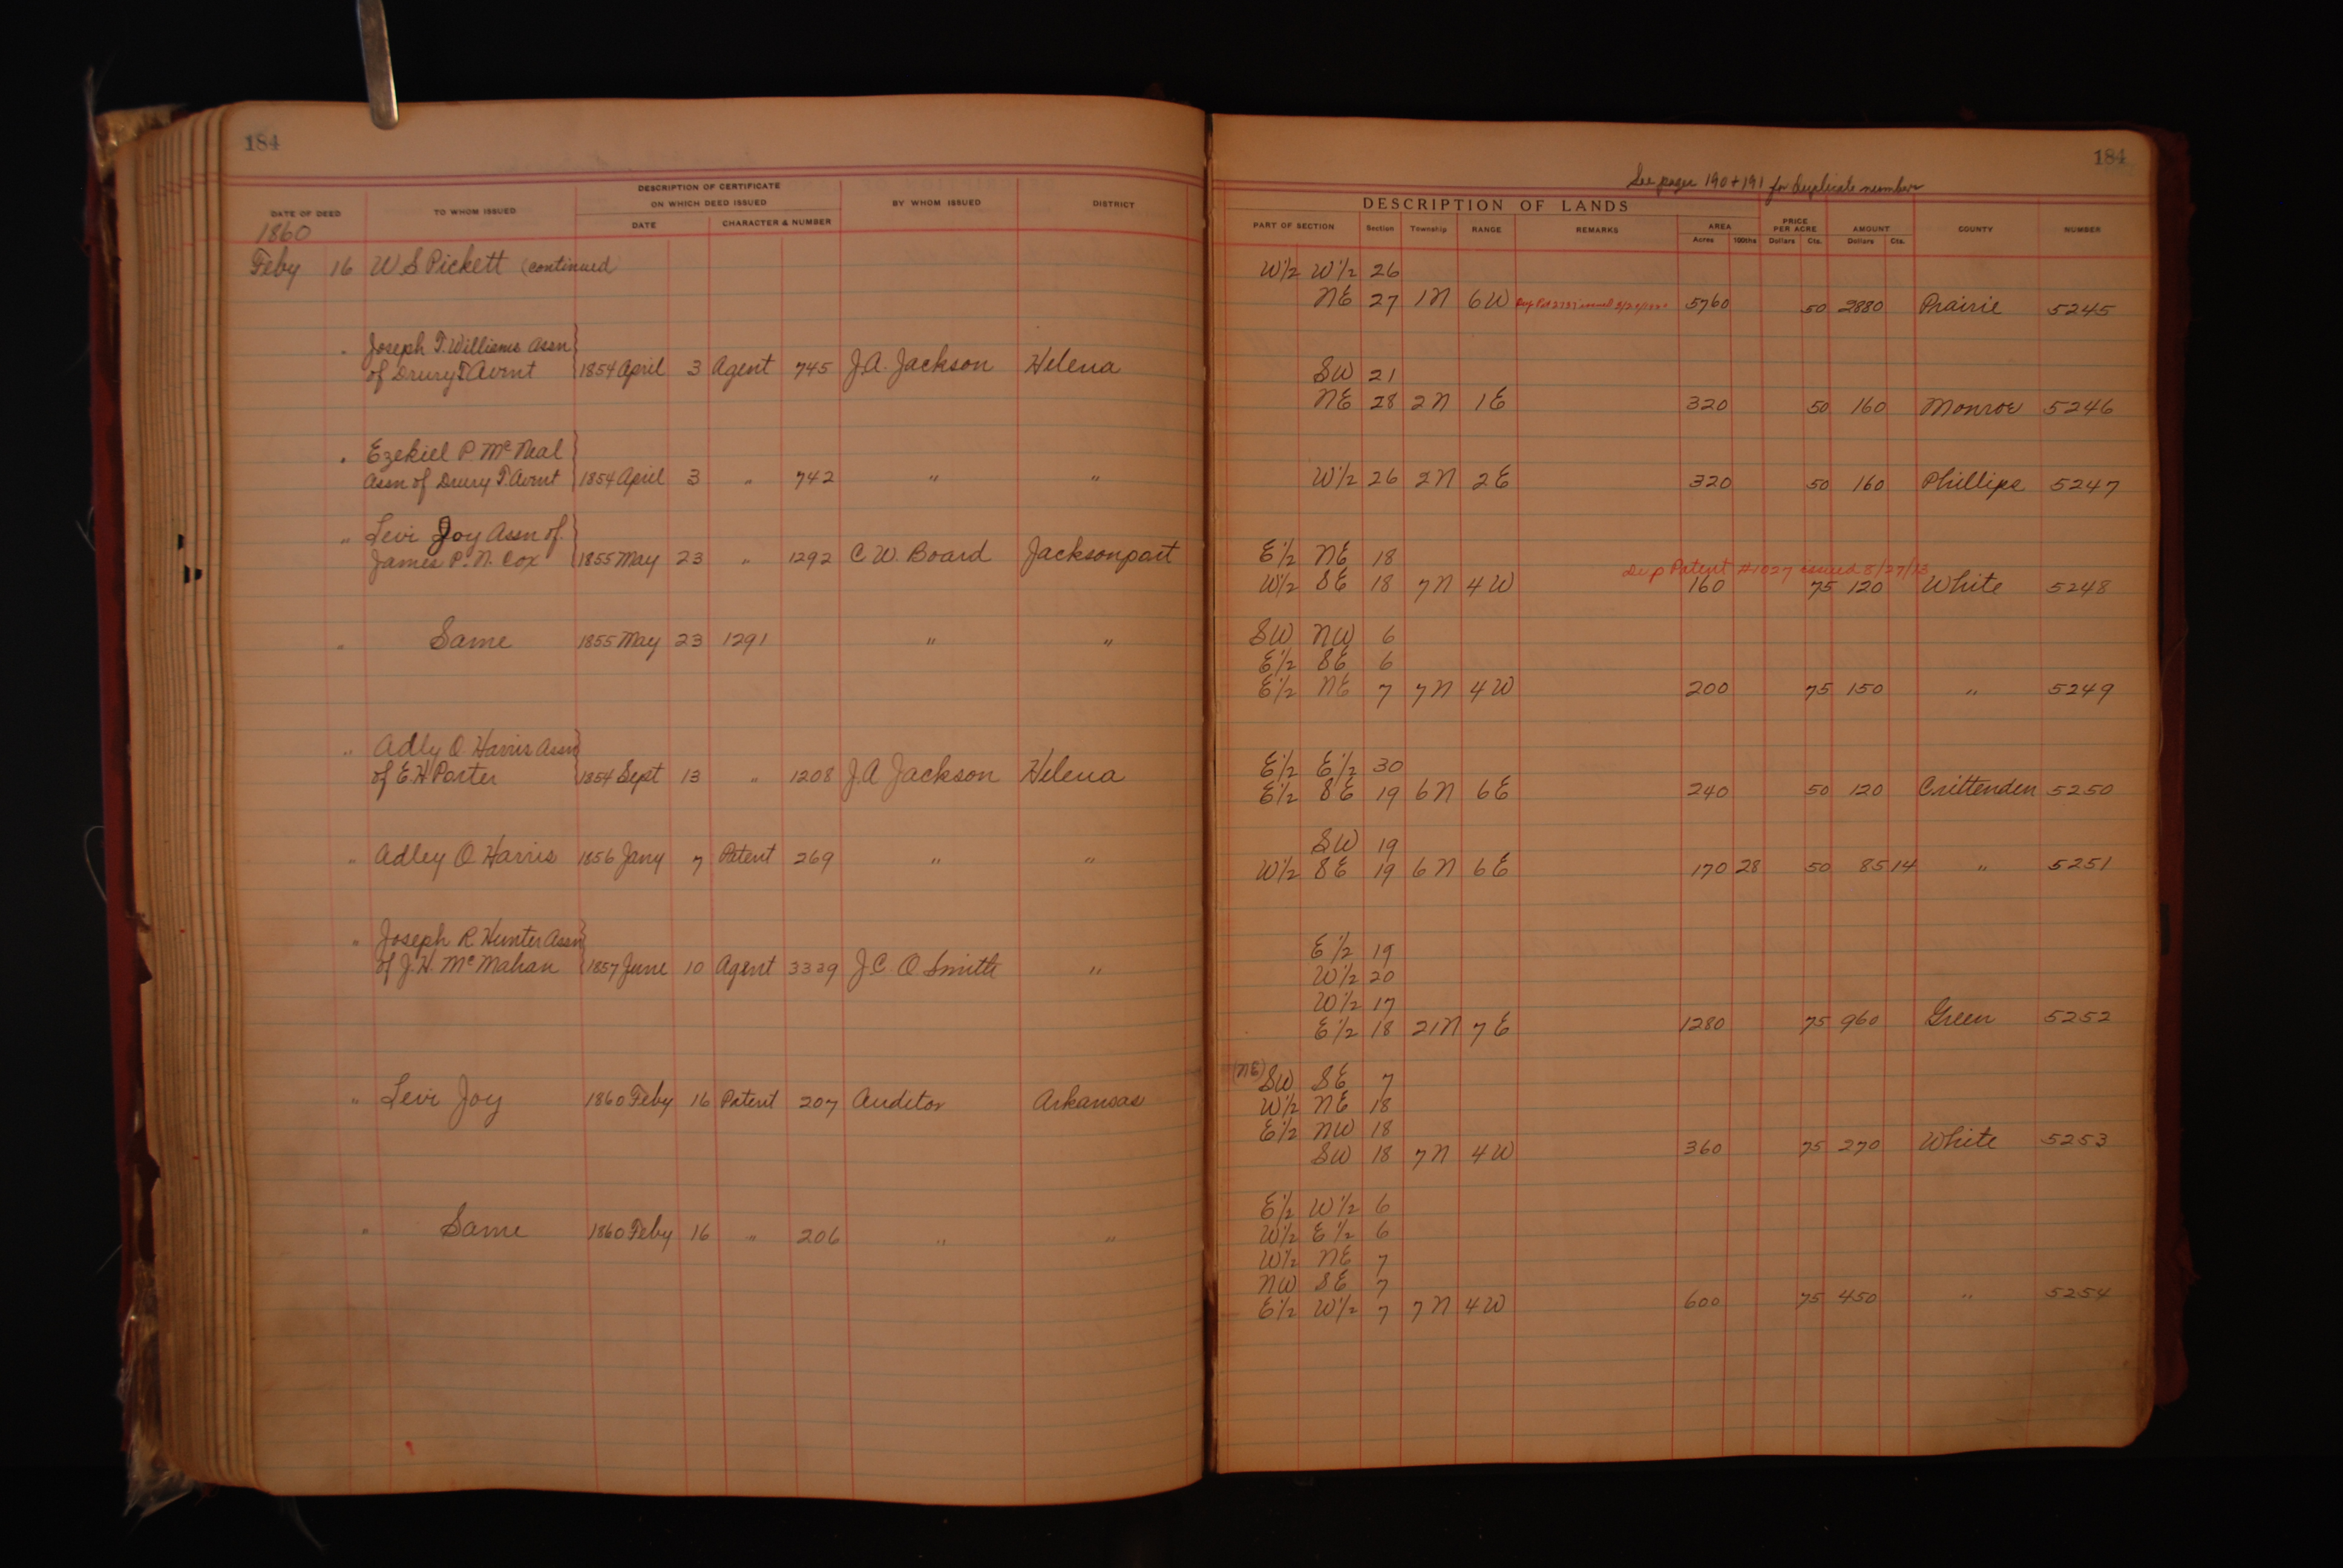 184
184
See pages 190 + 191 for duplicate number
DESCRIPTION OF CERTIFICATE
ON WHICH DEED ISSUED
DATE OF DEED TO WHOM ISSUED DATE CHARACTER & NUMBER BY WHOM ISSUED DISTRICT
DESCRIPTION OF LANDS
PART OF SECTION Section Township RANGE REMARKS AREA Acres 100ths PRICE PER ACRE Dollars Cts. AMOUNT Dollars Cts. COUNTY NUMBER
1860
Feby 16 W S Pickett (continued W½ W½ 26
NE 27 1N 6W 5760 50 2880 Prairie 5245
" Joseph T. Williams Assn
of Drury T. Avent 1854 April 3 Agent 745 J.A. Jackson Helena SW 21
NE 28 2N 1E 320 50 160 Monroe 5246
" Ezekiel P. McNeal
Assn of Drury T. Avent 1854 April 3 " 742 " " W½ 26 2N 2E 320 50 160 Phillips 5247
" Levi Joy Assn of
James P. N. Cox 1855 May 23 " 1292 C W. Board Jacksonport E½ NE 18
Dup Patent #1027 issued 8/27/13
W½ SE 18 7N 4W 160 75 120 White 5248
" Same 1855 May 23 1291 " " SW NW 6
E½ SE 6
E½ NE 7 7N 4W 200 75 150 " 5249
" Adly O. Harris Assn
of E H Porter 1854 Sept 13 " 1208 J.A Jackson Helena E½ E½ 30
E½ SE 19 6N 6E 240 50 120 Crittenden 5250
SW 19
" Adley O Harris 1856 Jany 7 Patent 269 " " W½ SE 19 6N 6E 170 28 50 85 14 " 5251
" Joseph R. Hunter Assn E½ 19
of J. H. McMahan 1857 June 10 Agent 3339 J. C. O. Smith " W½ 20
W½ 17
E½ 18 21N 7E 1280 75 960 Green 5252
(NE) SW SE 7
" Levi Joy 1860 Feby 16 Patent 207 Auditor Arkansas W½ NE 18
E½ NW 18
SW 18 7N 4W 360 75 270 White 5253
E½ W½ 6
" Same 1860 Feby 16 " 206 " " W½ E½ 6
W½ NE 7
NW SE 7
E½ W½ 7 7N 4W 600 75 450 " 5254